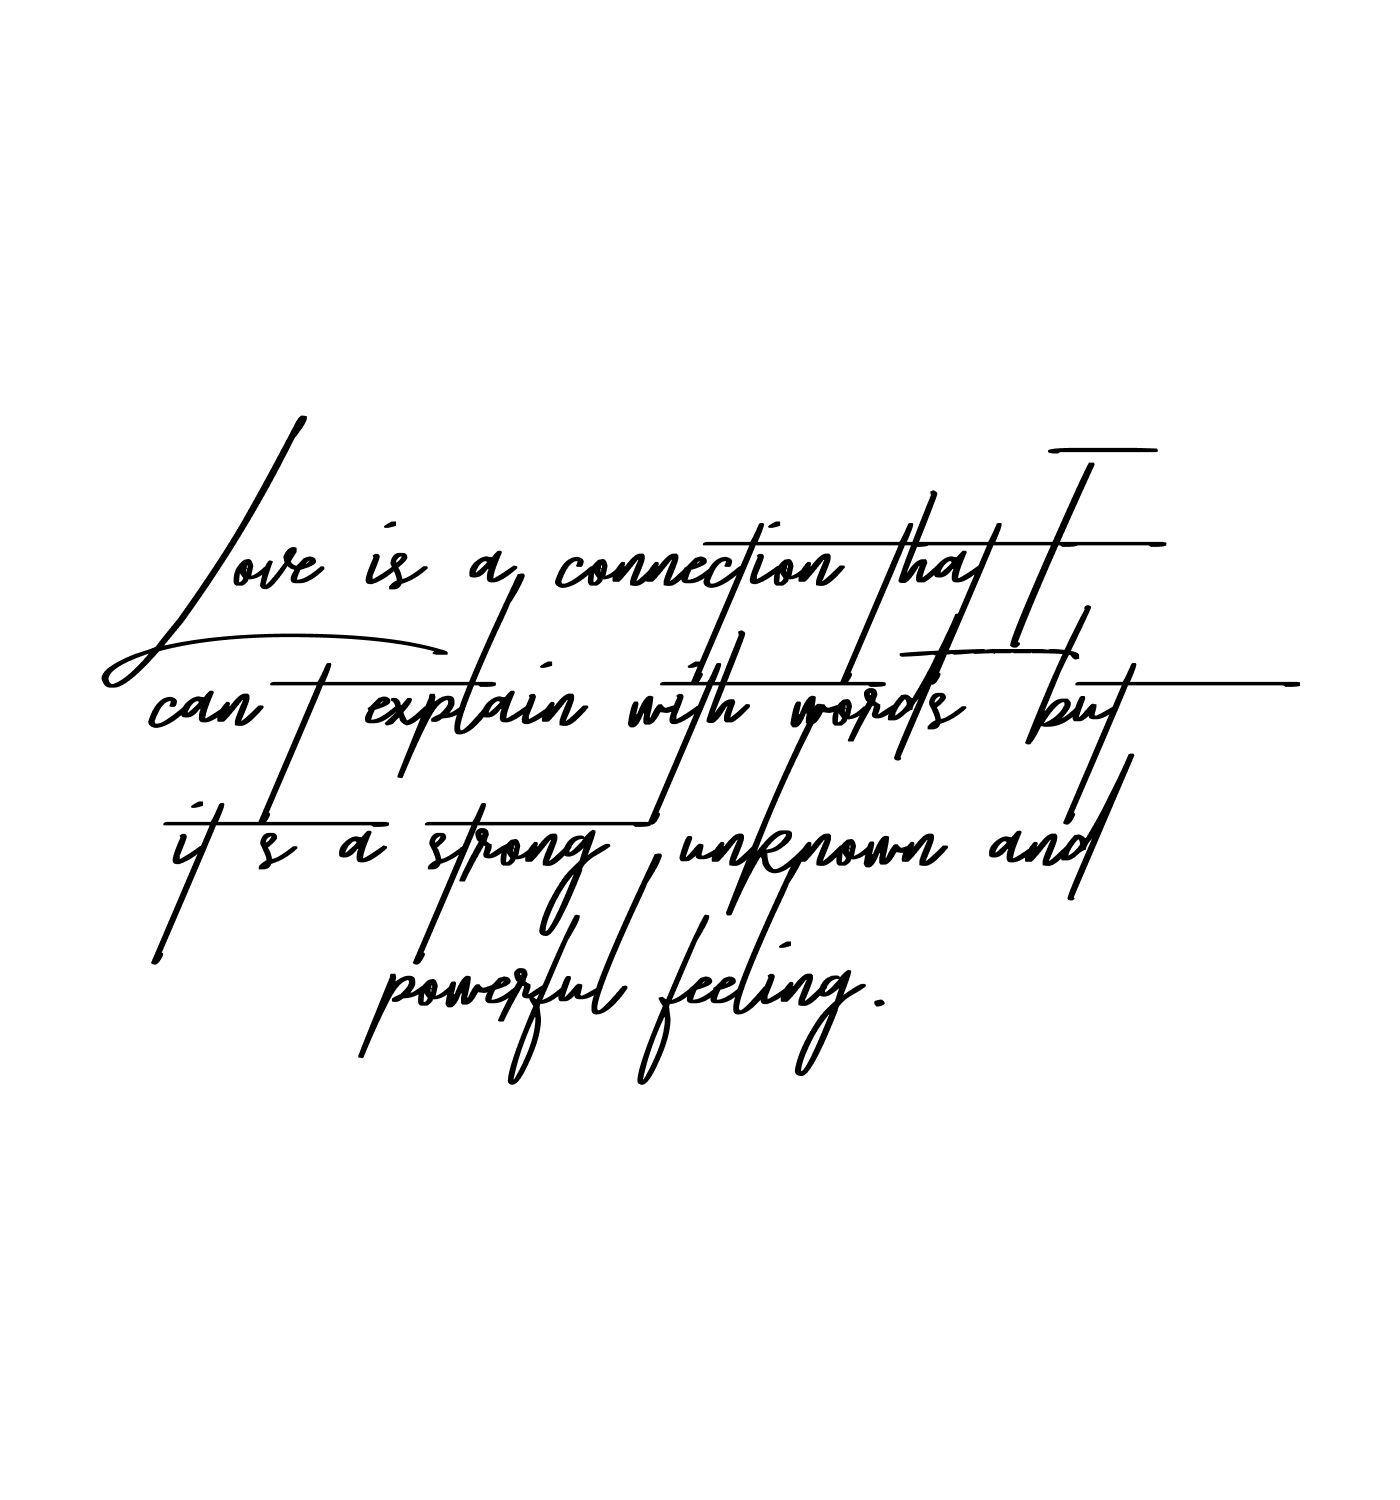 Love is a connection that I
can t explain with words but
it s a strong unknown and
powerful feeling.